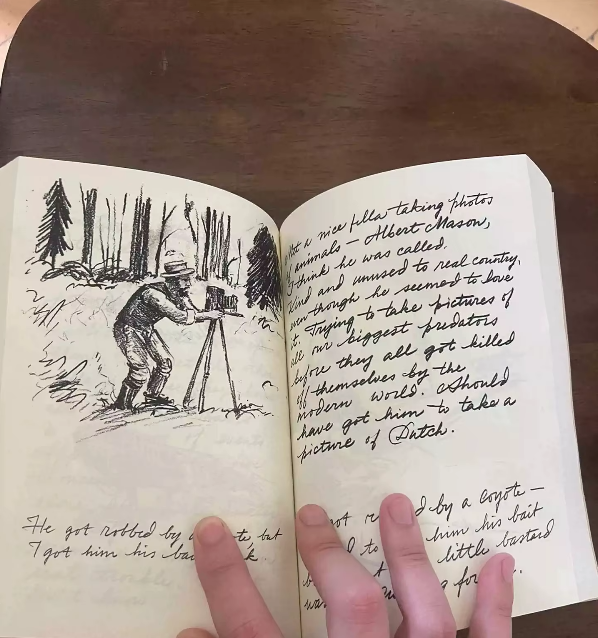 He got robbed by a te but
I got him his ba k.
Met a nice fella taking photos
of animals – Albert Mason,
I think he was called.
Kind and unused to real country,
even though he seemed to love
it. Trying to take pictures of
all our biggest predators
before they all got killed
off themselves by the
modern world. Should
have got him to take a
picture of Dutch.
got d by a Coyote –
him his bait
little bastard